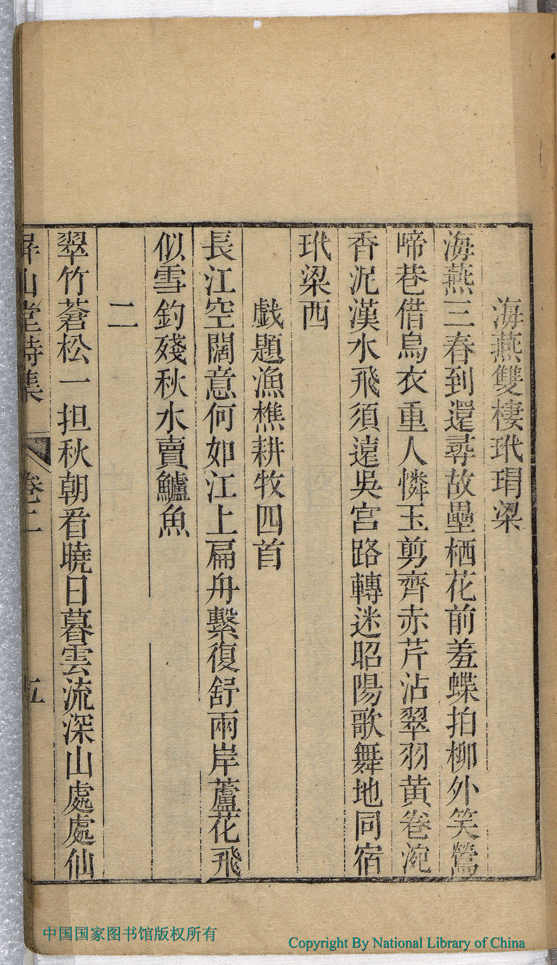 海燕雙棲玳瑁梁
海燕三春到還尋故壘栖花前羞蝶拍柳外笑鶯
啼巷借烏衣重人憐玉剪齊赤芹沾翠羽黃卷涴
香泥漢水飛須遠吳宮路轉迷昭陽歌舞地同宿
玳梁西
戲題漁樵耕牧四首
長江空闊意何如江上扁舟繫復舒兩岸蘆花飛
似雪釣殘秋水賣鱸魚
二
翠竹蒼松一担秋朝看曉日暮雲流深山處處仙
屏山堂詩集 卷二 五
中国国家图书馆版权所有
Copyright By National Library of China